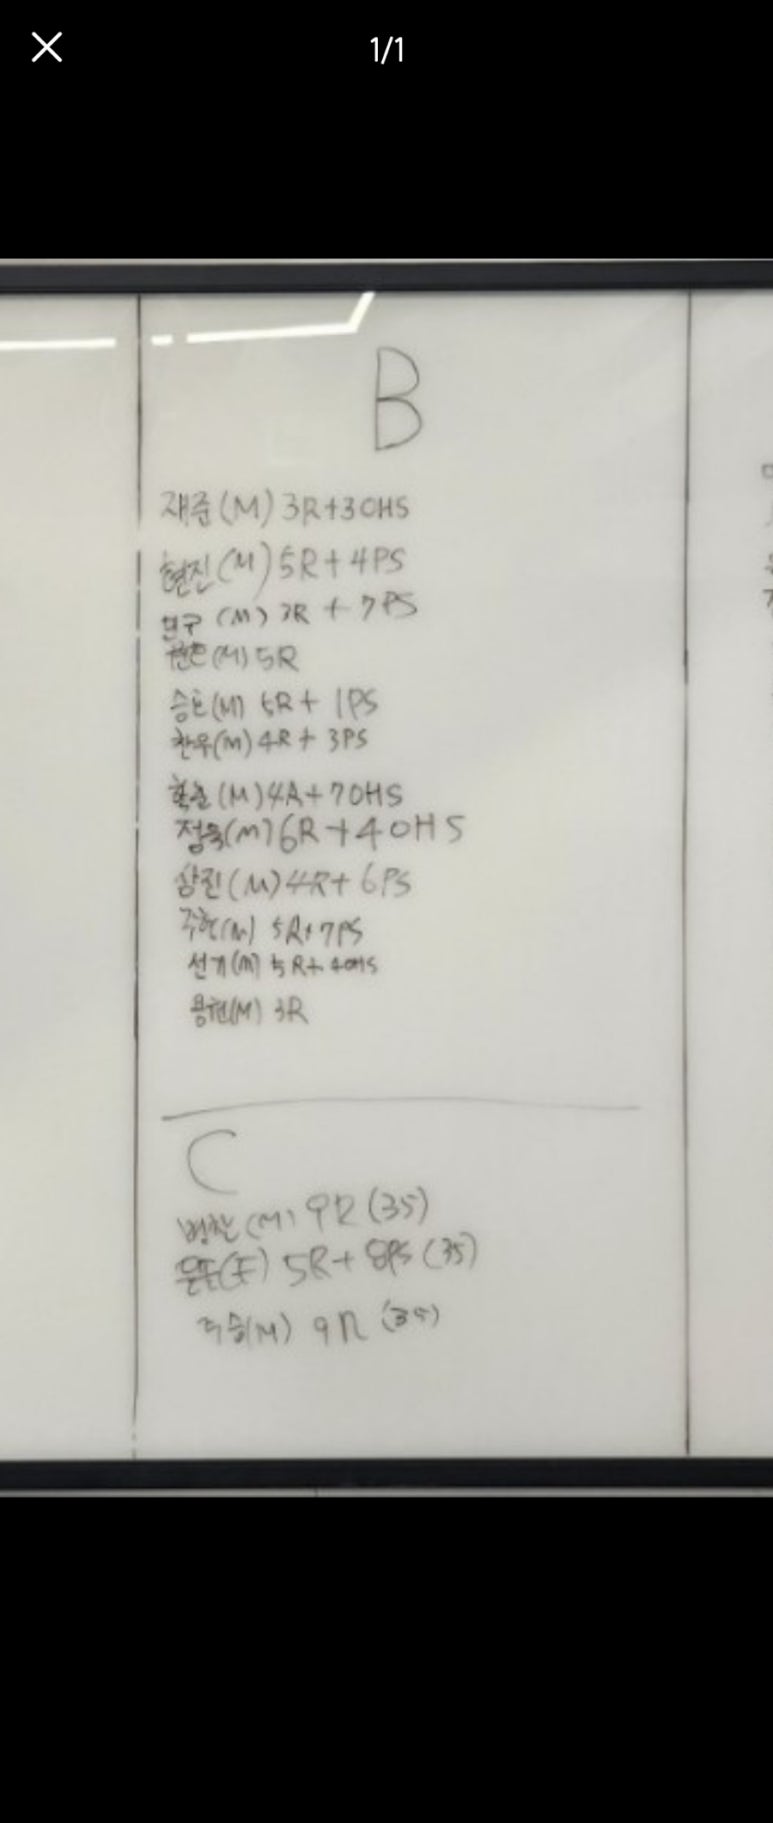 1/1
B
재준(M) 3R+3OHS
현진(M) 5R+4PS
민구 (M) 3R + 7PS
(M) 5R
승호(M) 5R+ 1PS
찬우(M) 4R+ 3PS
(M) 4R+7OHS
정욱(M) 6R+4OHS
상진(M) 4R+ 6PS
주현(M) 5R+7PS
선기(M) 5R+4OHS
용현(M) 3R
C
병찬(M) 9R (35)
(F) 5R+ 8PS (35)
(M) 9R (35)